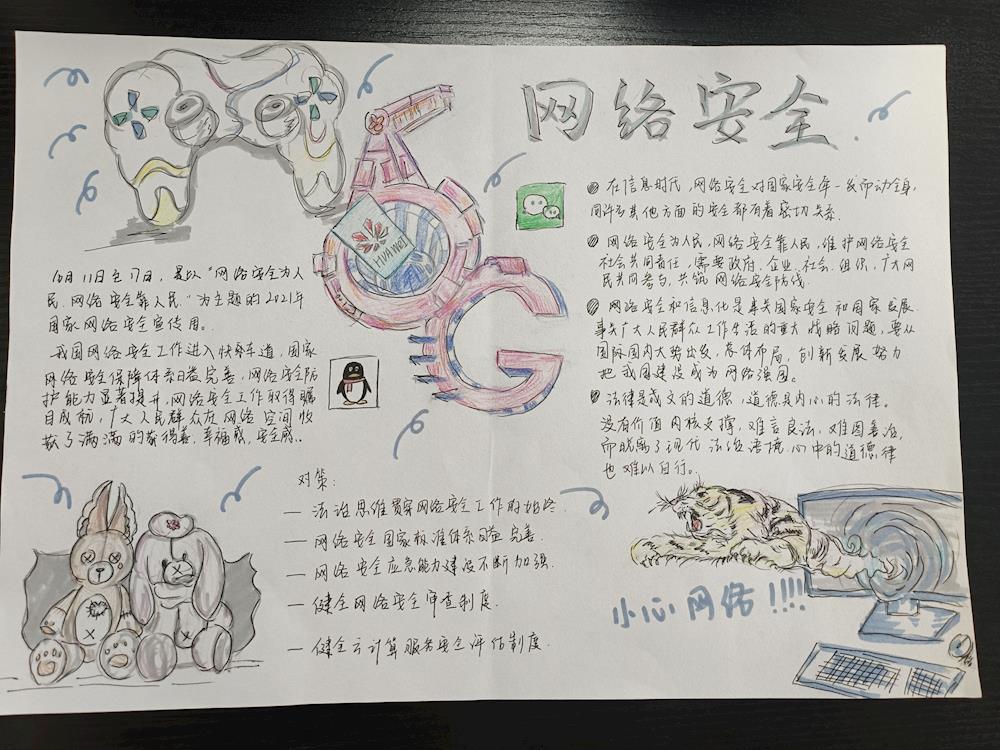 网络安全
在信息时代,网络安全对国家安全牵一发而动全身,
同许多其他方面的安全都有着密切关系.
网络安全为人民,网络安全靠人民,维护网络安全
社会共同责任,需要政府.企业.社会.组织,广大网
民共同参与,共筑网络安全防线.
网络安全和信息化是事关国家安全和国家发展
事关广大人民群众工作生活的重大战略问题,要从
国际国内大势出发,总体布局,创新发展努力
把我国建设成为网络强国。
法律是成文的道德,道德是内心的法律。
没有价值内核支撑,难言良法,难图善治,
而脱离了现代法治语境,心中的道德律
也难以自行。
HUAWEI
5G
10月11日至17日,是以“网络安全为人
民.网络安全靠人民”为主题的2021年
国家网络安全宣传周。
我国网络安全工作进入快车道,国家
网络安全保障体系日益完善,网络安全防
护能力显著提升,网络安全工作取得瞩
目成就,广大人民群众在网络空间收
获了满满的获得感,幸福感,安全感..
对策:
— 法治思维贯穿网络安全工作的始终.
— 网络安全国家标准体系日益完善.
— 网络安全应急能力建设不断加强.
— 健全网络安全审查制度.
— 健全云计算服务安全评估制度.
小心网络!!!!